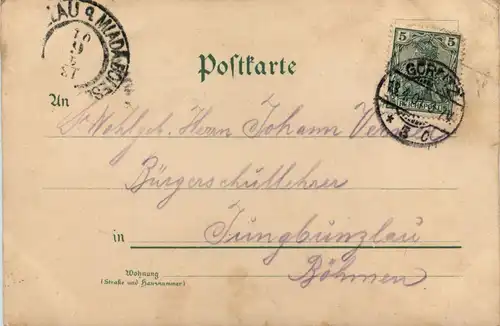 LAU * MLADÁ BOLESL
Postkarte
5
GÖRLITZ
* 3 c.
An
Sr. Wohlgeb. Herrn Johann
Bürgerschullehrer
in Jungbunzlau
Böhmen
Wohnung
(Straße und Hausnummer)